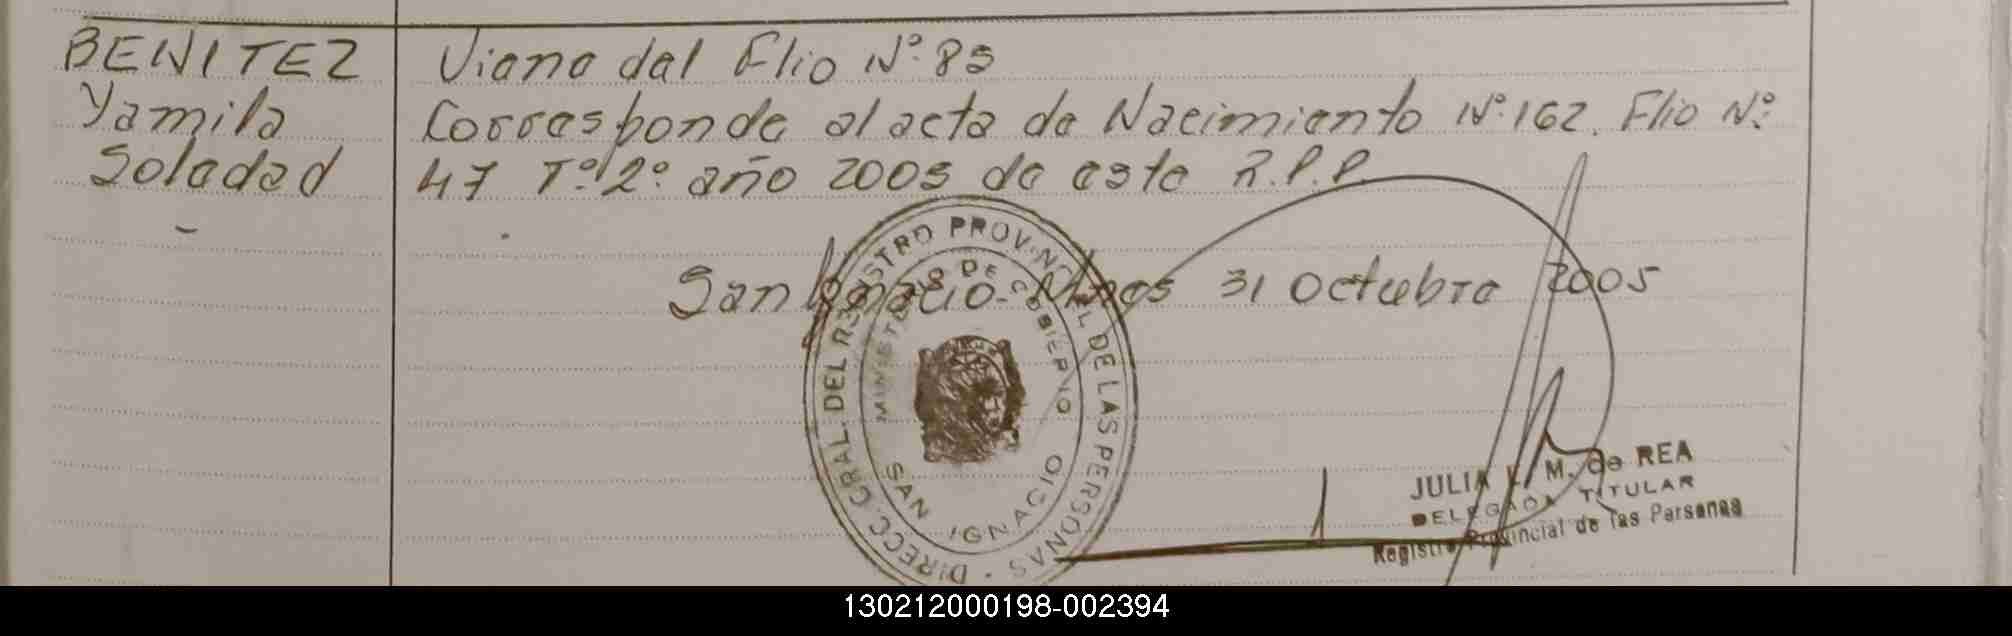 BENITEZ
Yamila
Soledad
-
Viene del Flio Nº 85
Corresponde al acta de Nacimiento Nº 162. Flio Nº
47 Tº 2º año 2005 de este R.P.P.
San Ignacio - Mnes 31 Octubre 2005
DIRECC. GRAL. DEL REGISTRO PROVINCIAL DE LAS PERSONAS
MINISTERIO DE GOBIERNO
SAN IGNACIO
JULIA L. M. de REA
DELEGADA TITULAR
Registro Provincial de las Personas
130212000198-002394